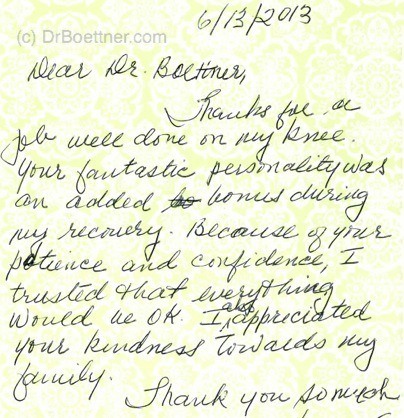 6/13/2013
(c) DrBoettner.com
Dear Dr. Boettner,
Thanks for a
job well done on my knee.
Your fantastic personality was
an added bonus during
my recovery. Because of your
patience and confidence, I
trusted that everything
would be OK. I also appreciated
your kindness towards my
family.
Thank you so much